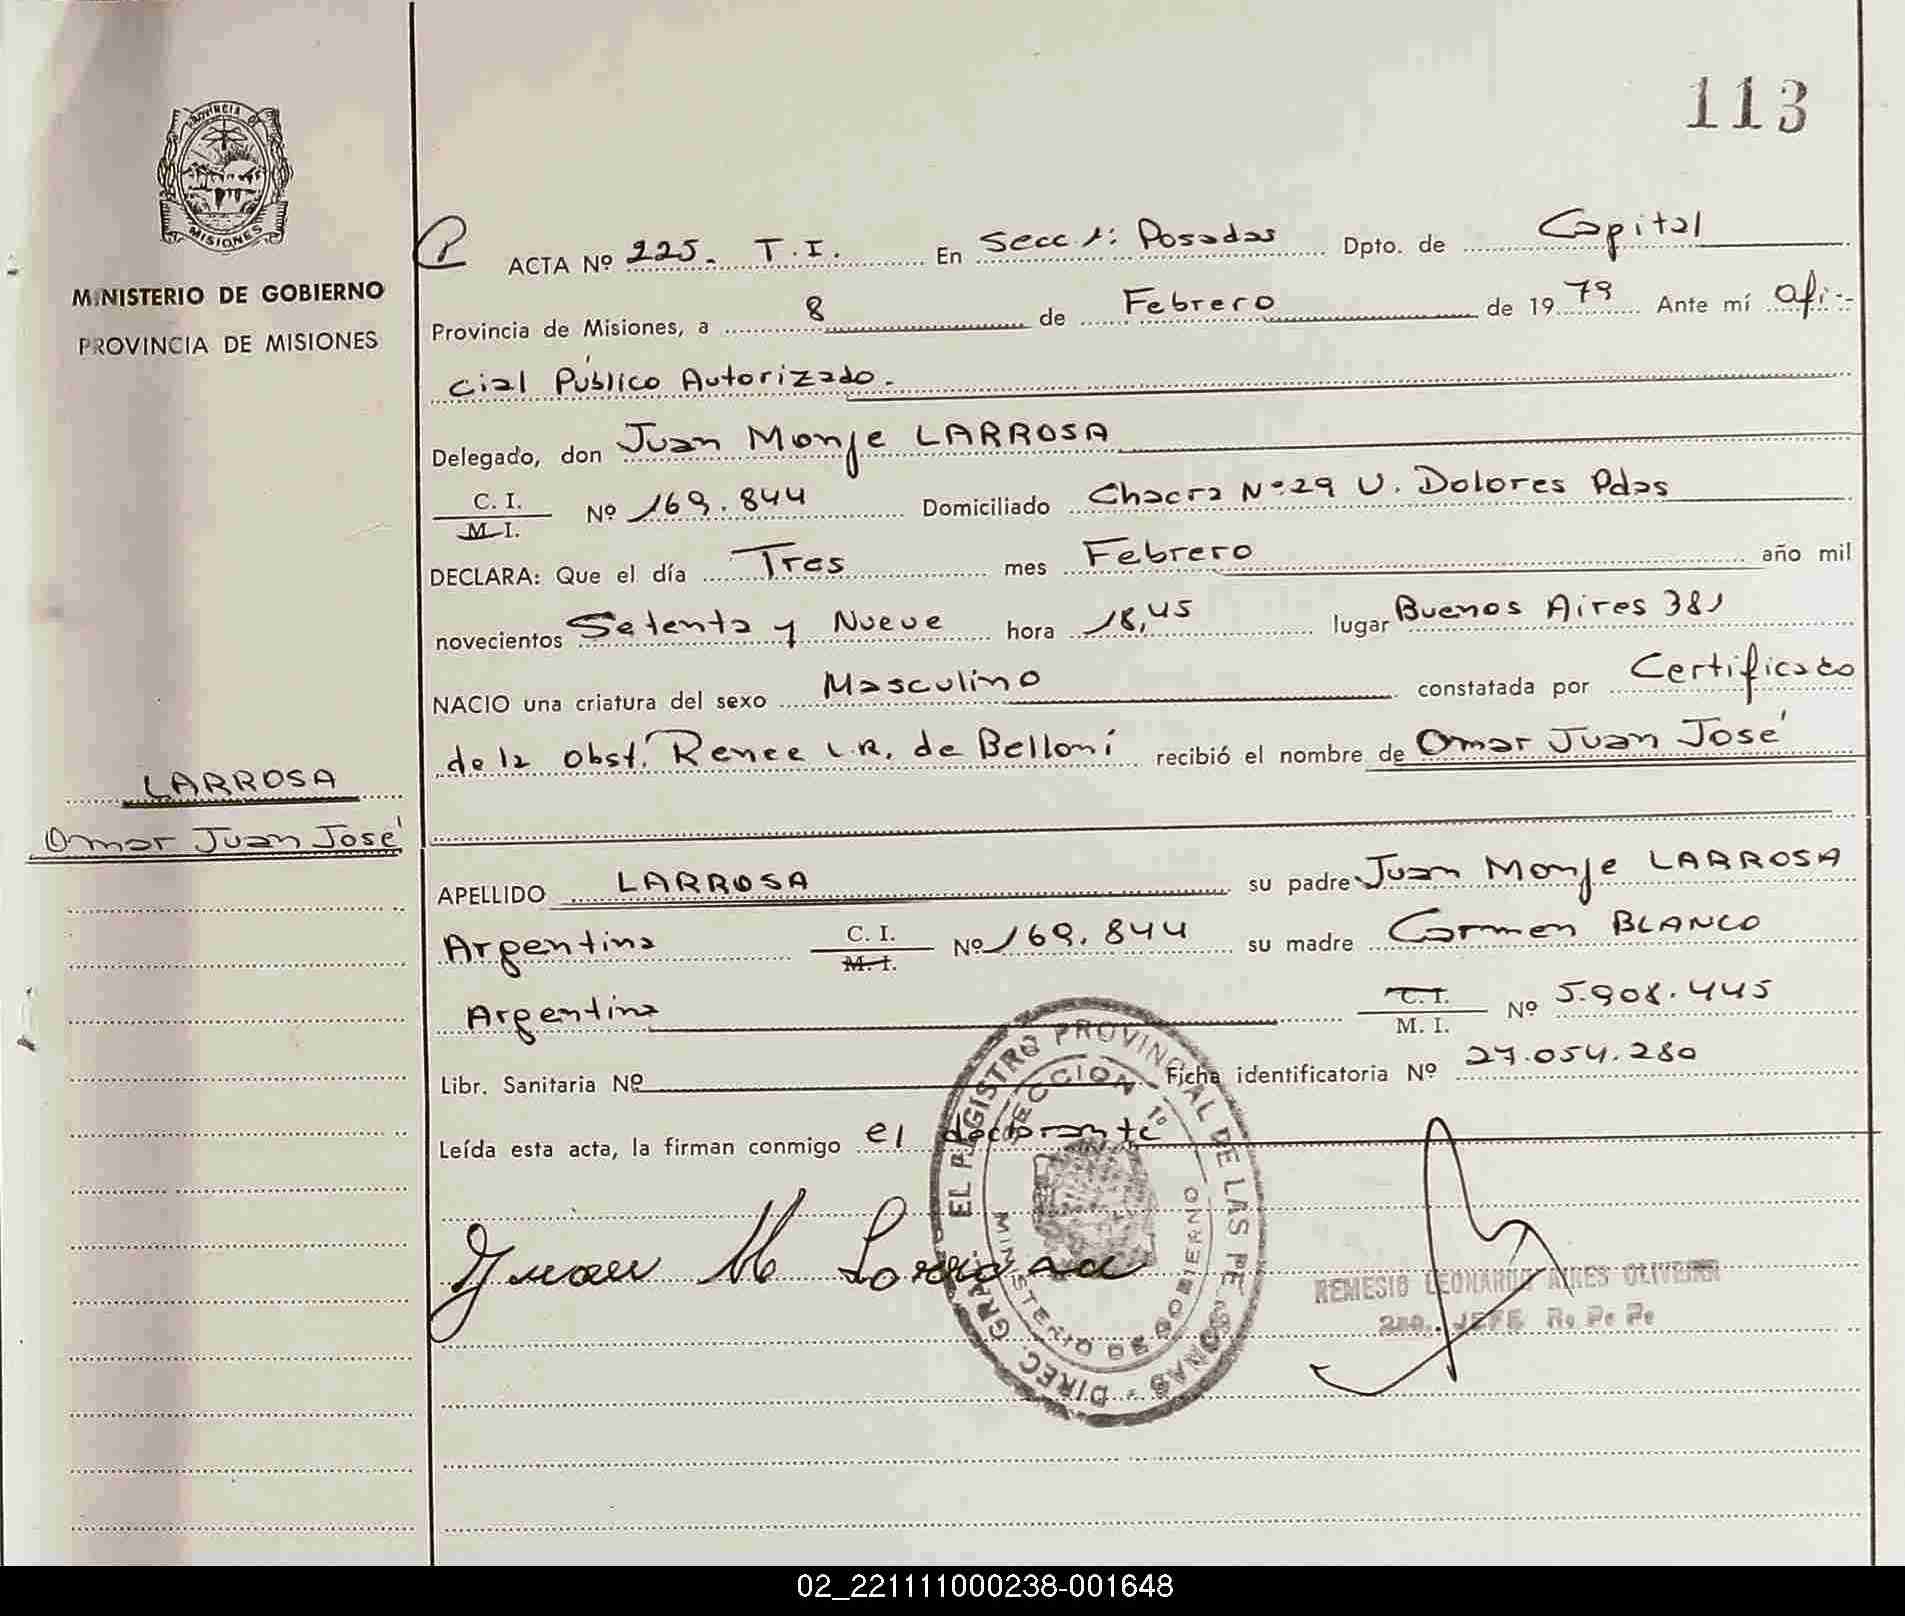 113
PROVINCIA DE
MISIONES
MINISTERIO DE GOBIERNO
PROVINCIA DE MISIONES
ACTA Nº 225. T.I. En Secc 1: Posadas Dpto. de Capital
Provincia de Misiones, a 8 de Febrero de 1979 Ante mí ofi-
cial Público Autorizado.
Delegado, don Juan Monje LARROSA
C. I.
M. I. Nº 169.844 Domiciliado Chacra Nº 29 U. Dolores Pdas
DECLARA: Que el día Tres mes Febrero año mil
novecientos Setenta y Nueve hora 18,45 lugar Buenos Aires 381
NACIO una criatura del sexo Masculino constatada por Certificado
de la Obst. Renee L.R. de Belloni recibió el nombre de Omar Juan José
LARROSA
Omar Juan José
APELLIDO LARROSA su padre Juan Monje LARROSA
Argentina C. I. M. I. Nº 169.844 su madre Carmen BLANCO
Argentina C. I. M. I. Nº 5.908.445
Libr. Sanitaria Nº Ficha identificatoria Nº 27.054.280
Leída esta acta, la firman conmigo el declarante
Juan M Larrosa
DIREC. GRAL. EL REGISTRO PROVINCIAL DE LAS PERSONAS
SECCION 1º
MINISTERIO DE GOBIERNO
REMESIO LEONARDO AIRES OLIVEIRA
2do. JEFE R. P. P.
02_221111000238-001648